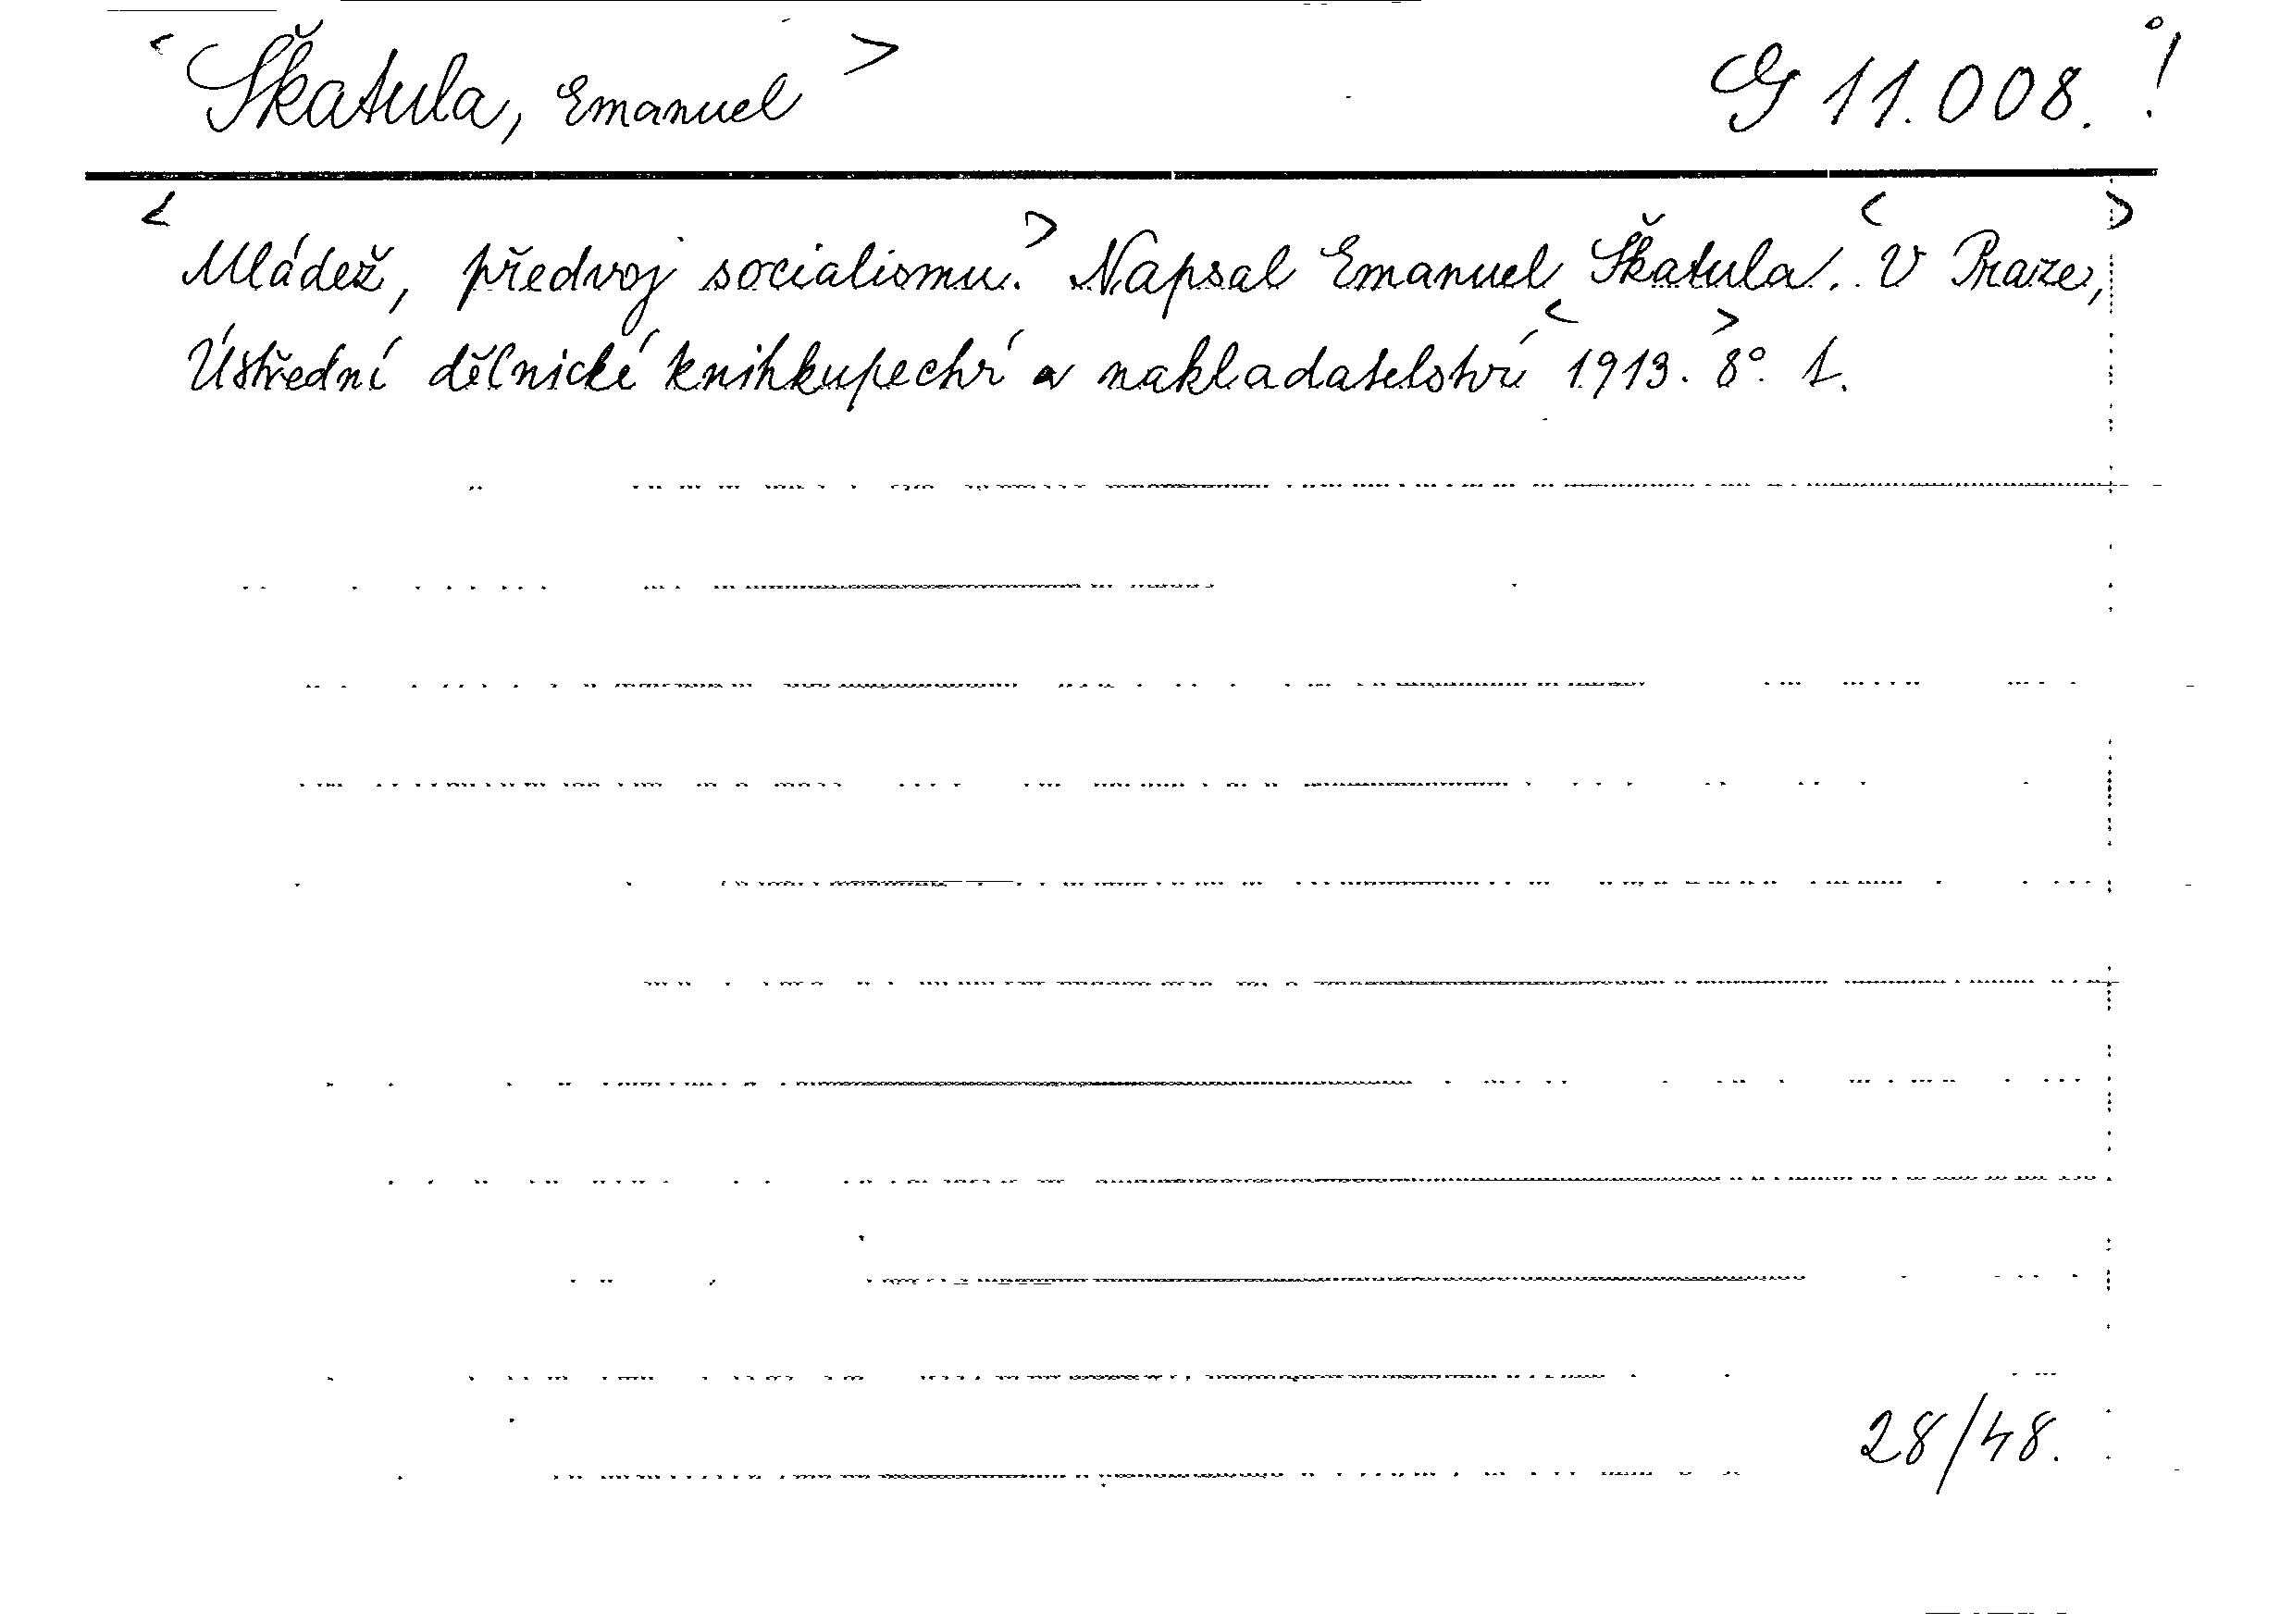 <Škatula, Emanuel> G 11.008. !
<Mládež, předvoj socialismu.> Napsal Emanuel Škatula. <V Praze,>
Ústřední dělnické knihkupectví a nakladatelství <1913.> 8°. 1.
28/48.